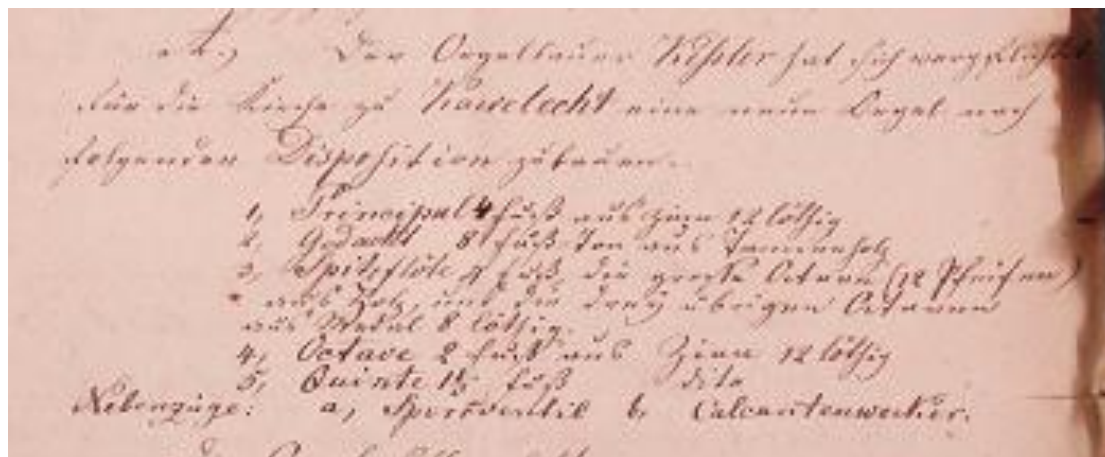 Der Orgelbauer Keßler hat sich verpflichtet
für die Kirche zu Kawelecht eine neue Orgel nach
folgender Disposition zu bauen.
1, Principal 4 fuß aus Zinn 12 löthig
2, Gedackt 8 fuß Ton aus Tannenholz
3, Spitzflöte 4 fuß, die große Octave (12 Pfeifen)
aus Holz, und die drey übrigen Octaven
aus Metal 8 löthig.
4, Octave 2 fuß aus Zinn 12 löthig
5, Quinte 1½ fuß dito
Nebenzüge: a, Sperrventil b, Calcantenwecker.